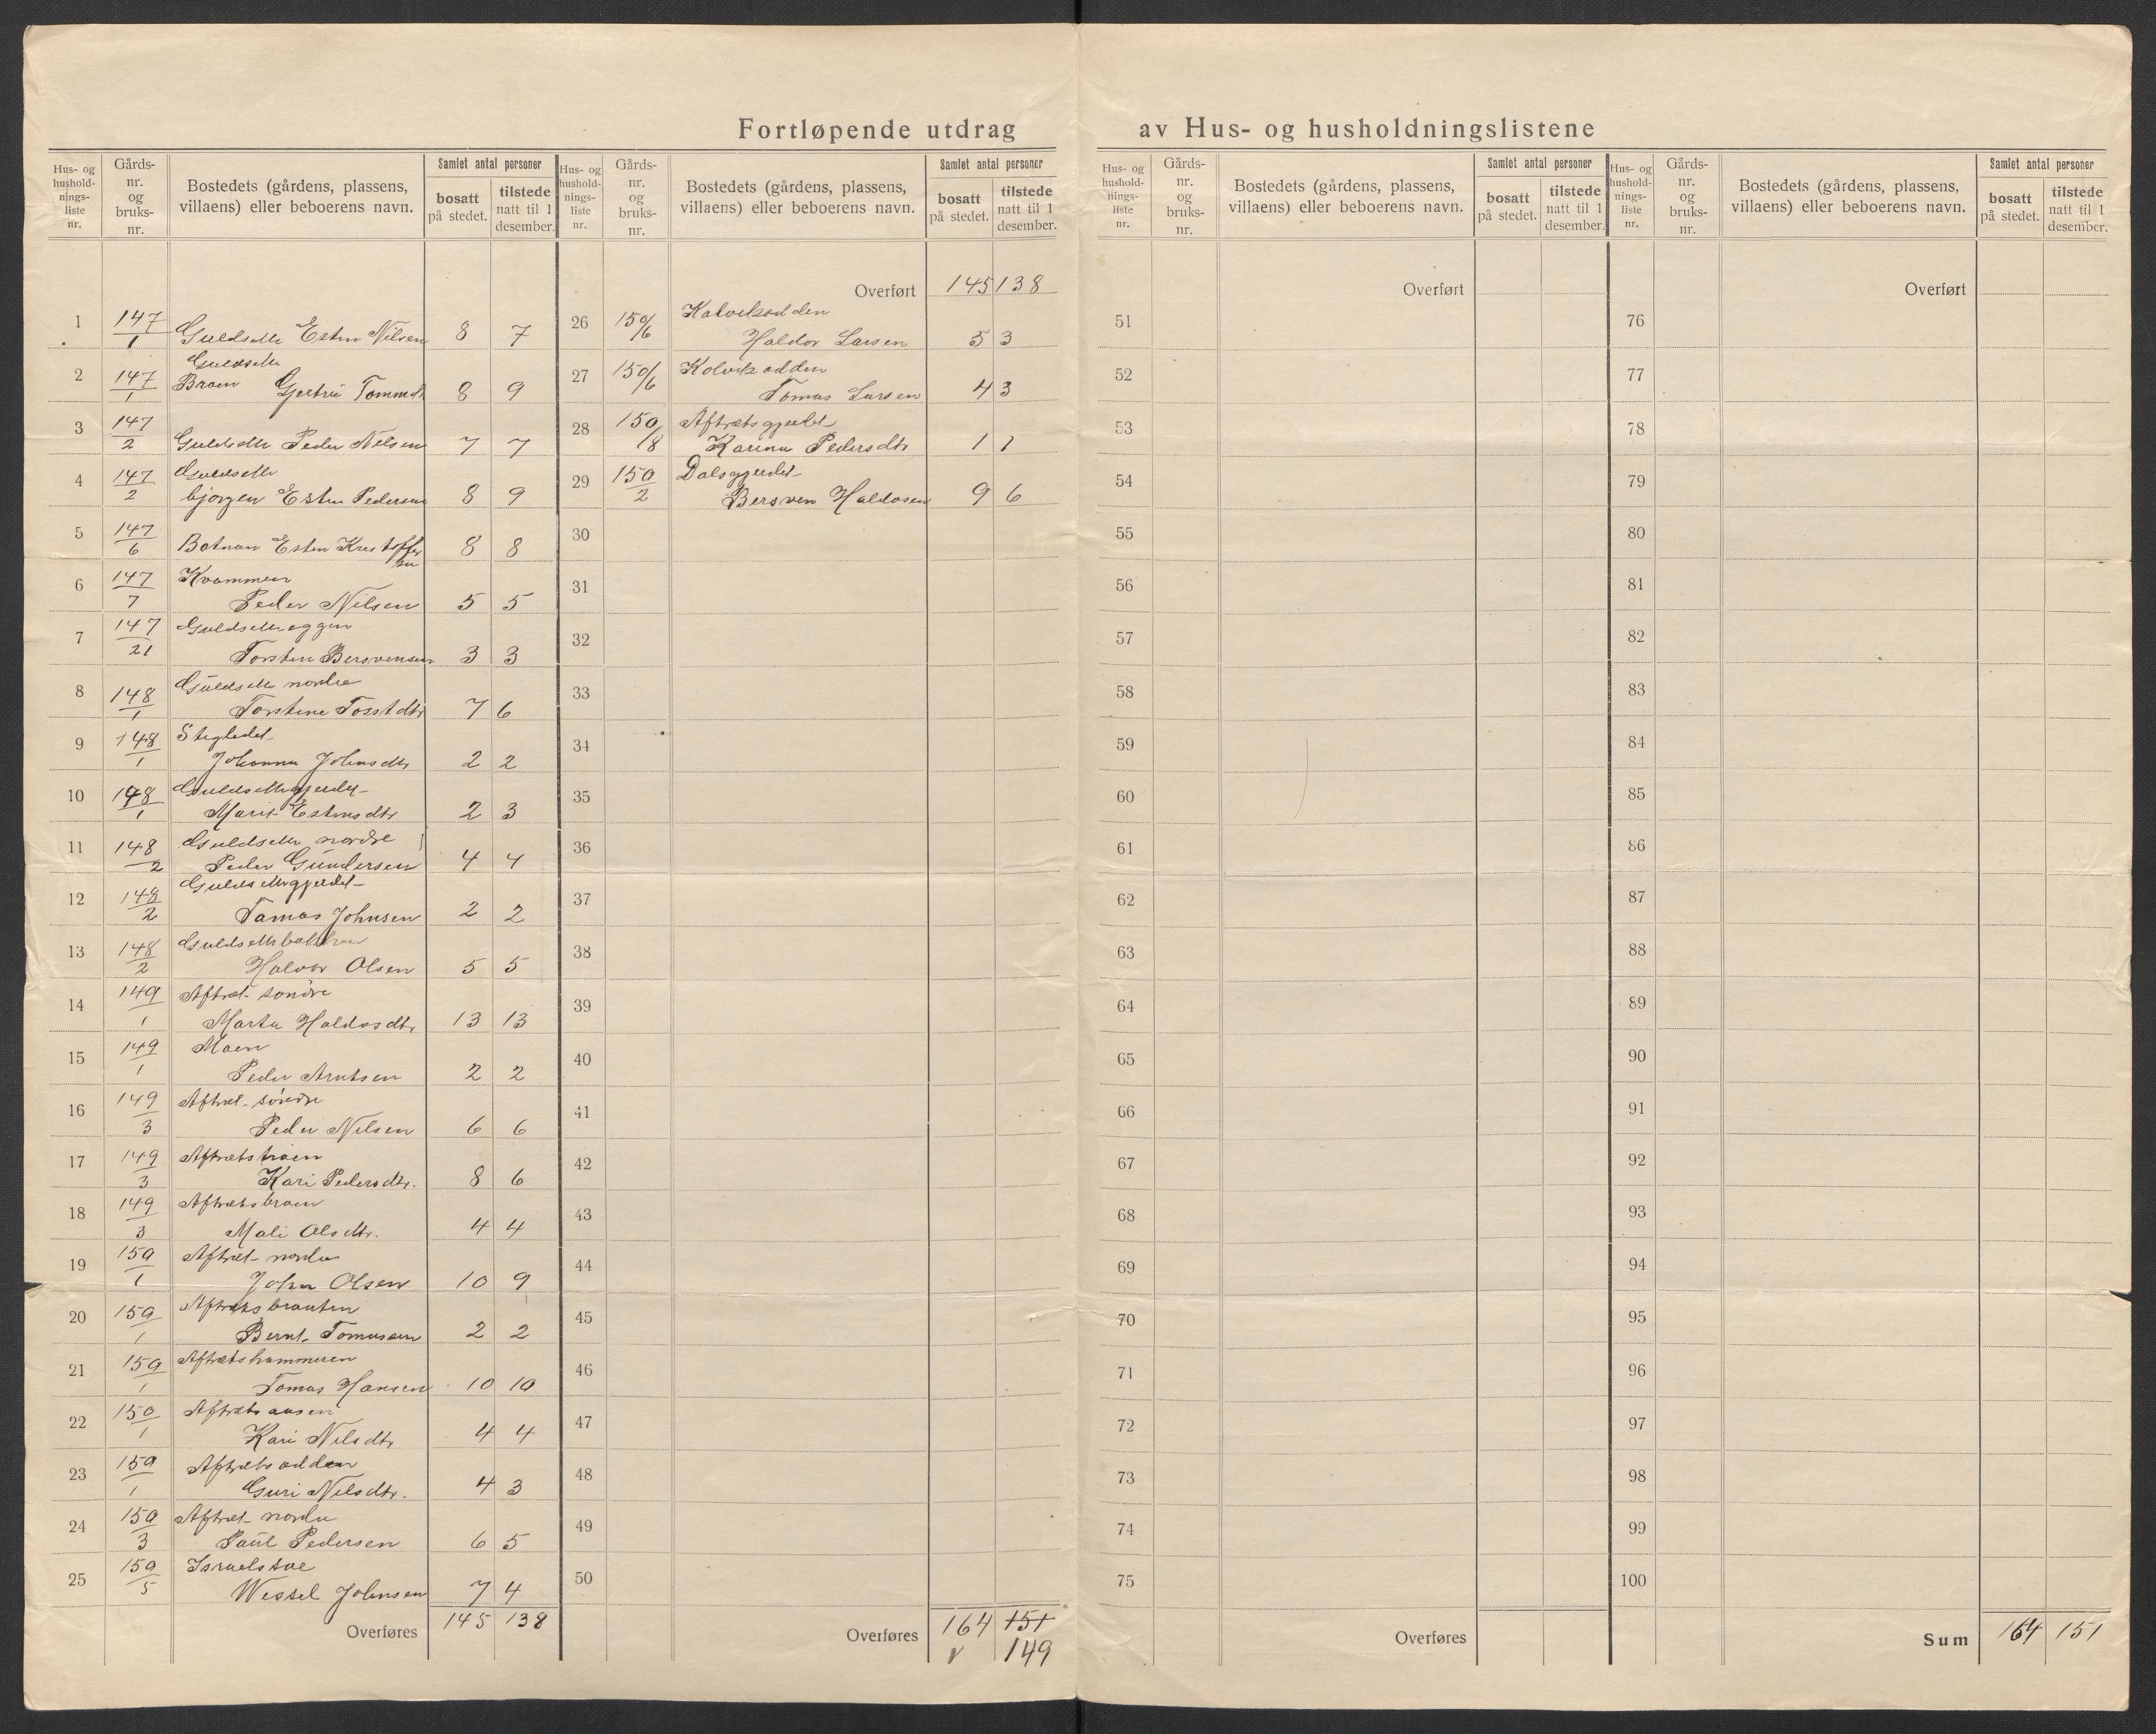 Fortløpende utdrag av Hus- og husholdningslistene
Hus- og hushold-nings-liste nr. Gårds-nr. og bruks-nr. Bostedets (gårdens, plassens, villaens) eller beboerens navn. Samlet antal personer bosatt på stedet. tilstede natt til 1 desember.
1 147/1 Guldsettr Esten Nilsen 8 7
2 147/1 Guldsettr
Braen Gjertrü Tommdt 8 9
3 147/2 Guldsettr Peder Nilsen 7 7
4 147/2 Guldsettr
bjørgen Esten Pedersen 8 9
5 147/6 Botnan Esten Krestoffersen 8 8
6 147/7 Kvammen
Peder Nilsen 5 5
7 147/21 Guldsettreggen
Torsten Bersvensen 3 3
8 148/1 Guldsettr nordre
Torstine Tosstdtr 7 6
9 148/1 Stegledet
Johanna Johnsdtr 2 2
10 148/1 Guldsettrgjerdet
Marit Estensdtr 2 3
11 148/2 Guldsettr nordre
Peder Gundersen 4 4
12 148/2 Guldsettrgjerdet
Tomas Johnsen 2 2
13 148/2 Guldsettrbakken
Halvor Olsen 5 5
14 149/1 Aftret søndre
Marta Haldosdtr 13 13
15 149/1 Moen
Peder Arntsen 2 2
16 149/3 Aftret søndre
Peder Nilsen 6 6
17 149/3
Kari Pedersdtr. 8 6
18 149/3 Aftrætsbraen
Mali Olsdtr. 4 4
19 150/1 Aftret nordre
John Olsen 10 9
20 150/1 Aftrætsbrauten
Bernt Tomassen 2 2
21 150/1 Aftrætshammeren
Tomas Hansen 10 10
22 150/1 Aftrætsaasen
Kari Nilsdtr 4 4
23 150/1 Aftrætsodden
Guri Nilsdtr. 4 3
24 150/3 Aftret nordre
Paul Pedersen 6 5
25 150/5 Israelstue
Wessel Johnsen 7 4
Overføres 145 138
Hus- og hushold-nings-liste nr. Gårds-nr. og bruks-nr. Bostedets (gårdens, plassens, villaens) eller beboerens navn. Samlet antal personer bosatt på stedet. tilstede natt til 1 desember.
Overført 145 138
26 150/6 Kalvikodden
Haldor Larsen 5 3
27 150/6 Kolvikodden
Tomas Larsen 4 3
28 150/8 Aftrætsgjerdet
Karina Pedersdtr 1 1
29 150/2 Dalsgjerdet
Bersven Haldosen 9 6
30
31
32
33
34
35
36
37
38
39
40
41
42
43
44
45
46
47
48
49
50
Overføres 164 151
149
Hus- og hushold-nings-liste nr. Gårds-nr. og bruks-nr. Bostedets (gårdens, plassens, villaens) eller beboerens navn. Samlet antal personer bosatt på stedet. tilstede natt til 1 desember.
Overført
51
52
53
54
55
56
57
58
59
60
61
62
63
64
65
66
67
68
69
70
71
72
73
74
75
Overføres
Hus- og hushold-nings-liste nr. Gårds-nr. og bruks-nr. Bostedets (gårdens, plassens, villaens) eller beboerens navn. Samlet antal personer bosatt på stedet. tilstede natt til 1 desember.
Overført
76
77
78
79
80
81
82
83
84
85
86
87
88
89
90
91
92
93
94
95
96
97
98
99
100
Sum 164 151